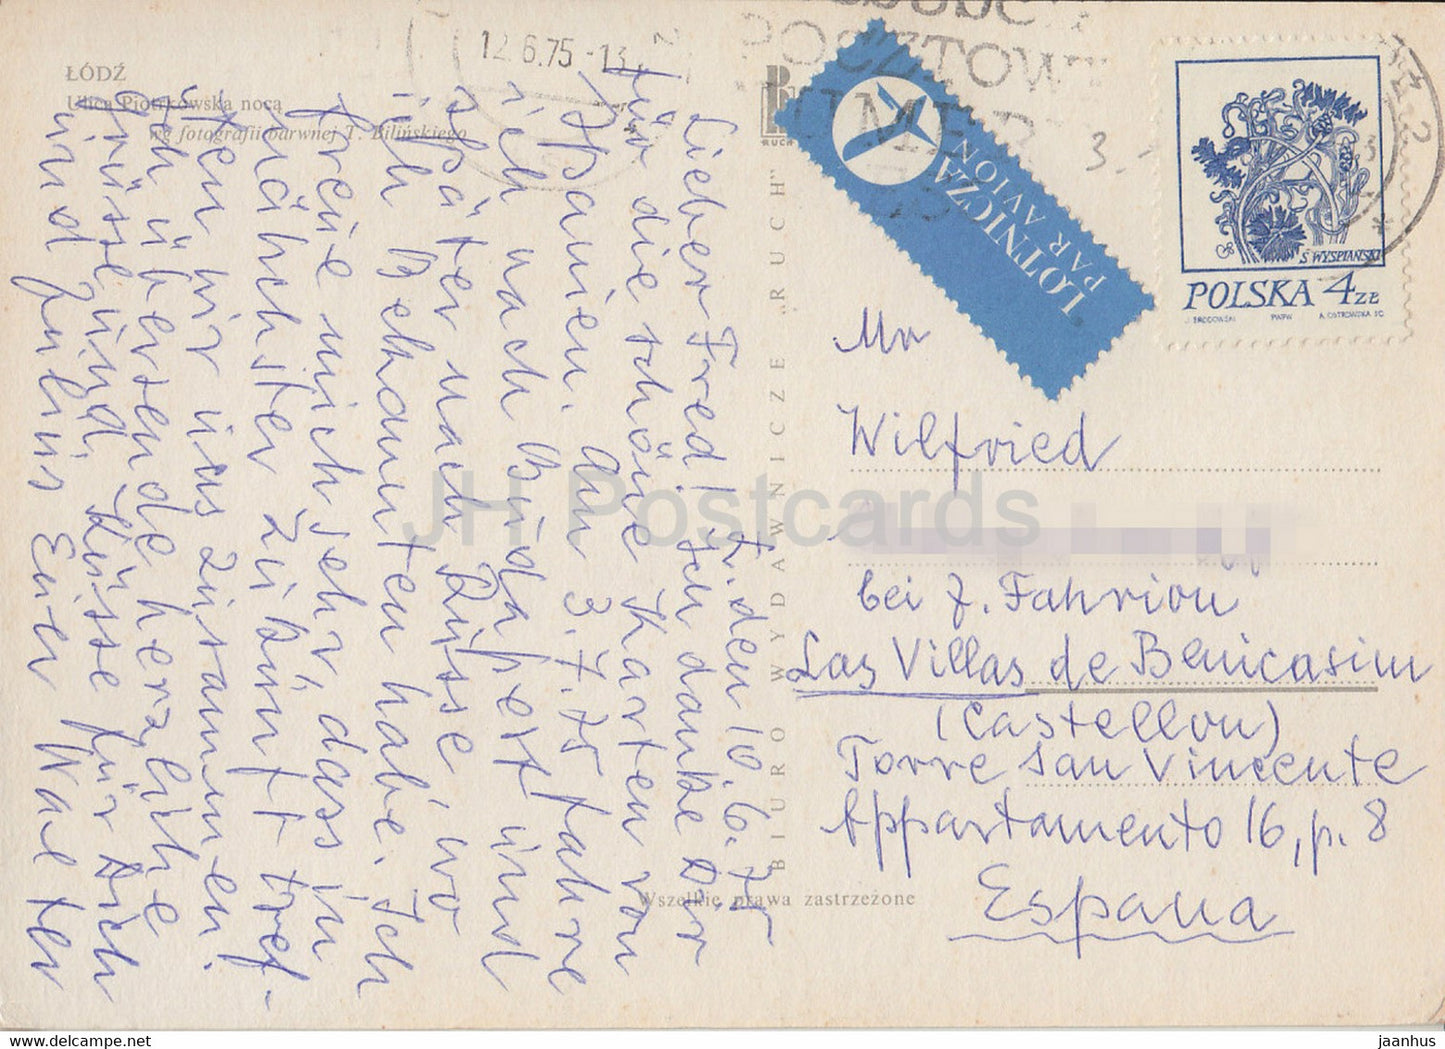 ŁÓDŹ
Ulica Piotrkowska nocą
wg fotografii barwnej T. Bilińskiego
12.6.75-13
POCZTOW
RUCH
LOTNICZA
PAR AVION
S WYSPIAŃSKI
POLSKA 4 ZŁ
BIURO WYDAWNICZE "RUCH"
Wszelkie prawa zastrzeżone
Ł. den 10.6.75
Lieber Fred! Ich danke Dir
für die schöne Karten von
Spanien. Am 3.7.75 fahre
ich nach Budapest und
später nach Russe wo
ich Bekannten habe. Ich
freue mich sehr, dass in
nächster Zukunft tref-
fen wir uns zusammen.
Ich übersende herzliche
Grüsse und Küsse für Dich
und Julius Euer Walter
Mr
Wilfried
bei J. Fahrion
Las Villas de Benicasim
(Castellon)
Torre San Vincente
Appartamento 16, p. 8
Espana
JH Postcards
jaanhus - e-MP.com